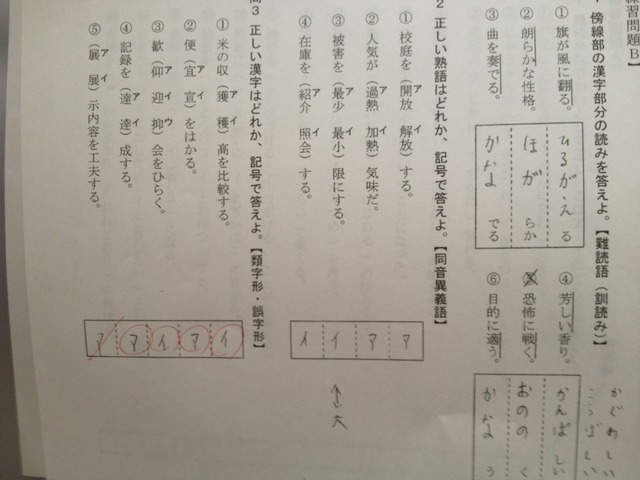 習問題B】
傍線部の漢字部分の読みを答えよ。【難読語（訓読み）】
① 旗が風に翻る。
② 朗らかな性格。
③ 曲を奏でる。
ひるがえ る
ほが らか
かな でる
④ 芳しい香り。
⑤ 恐怖に戦く。
⑥ 目的に適う。
かぐわしい
こうばしい
かんば しい
おのの く
かな う
2 正しい熟語はどれか、記号で答えよ。【同音異義語】
① 校庭を（ア開放 イ解放）する。
② 人気が（ア過熱 イ加熱）気味だ。
③ 被害を（ア最少 イ最小）限にする。
④ 在庫を（ア紹介 イ照会）する。
ア
ア
イ
イ
↔大
問3 正しい漢字はどれか、記号で答えよ。【類字形・誤字形】
① 米の収（ア獲 イ穫）高を比較する。
② 便（ア宜 イ宣）をはかる。
③ 歓（ア仰 イ迎 ウ抑）会をひらく。
④ 記録を（ア達 イ達）成する。
⑤（ア展 イ展）示内容を工夫する。
イ
ア
イ
ア
ア